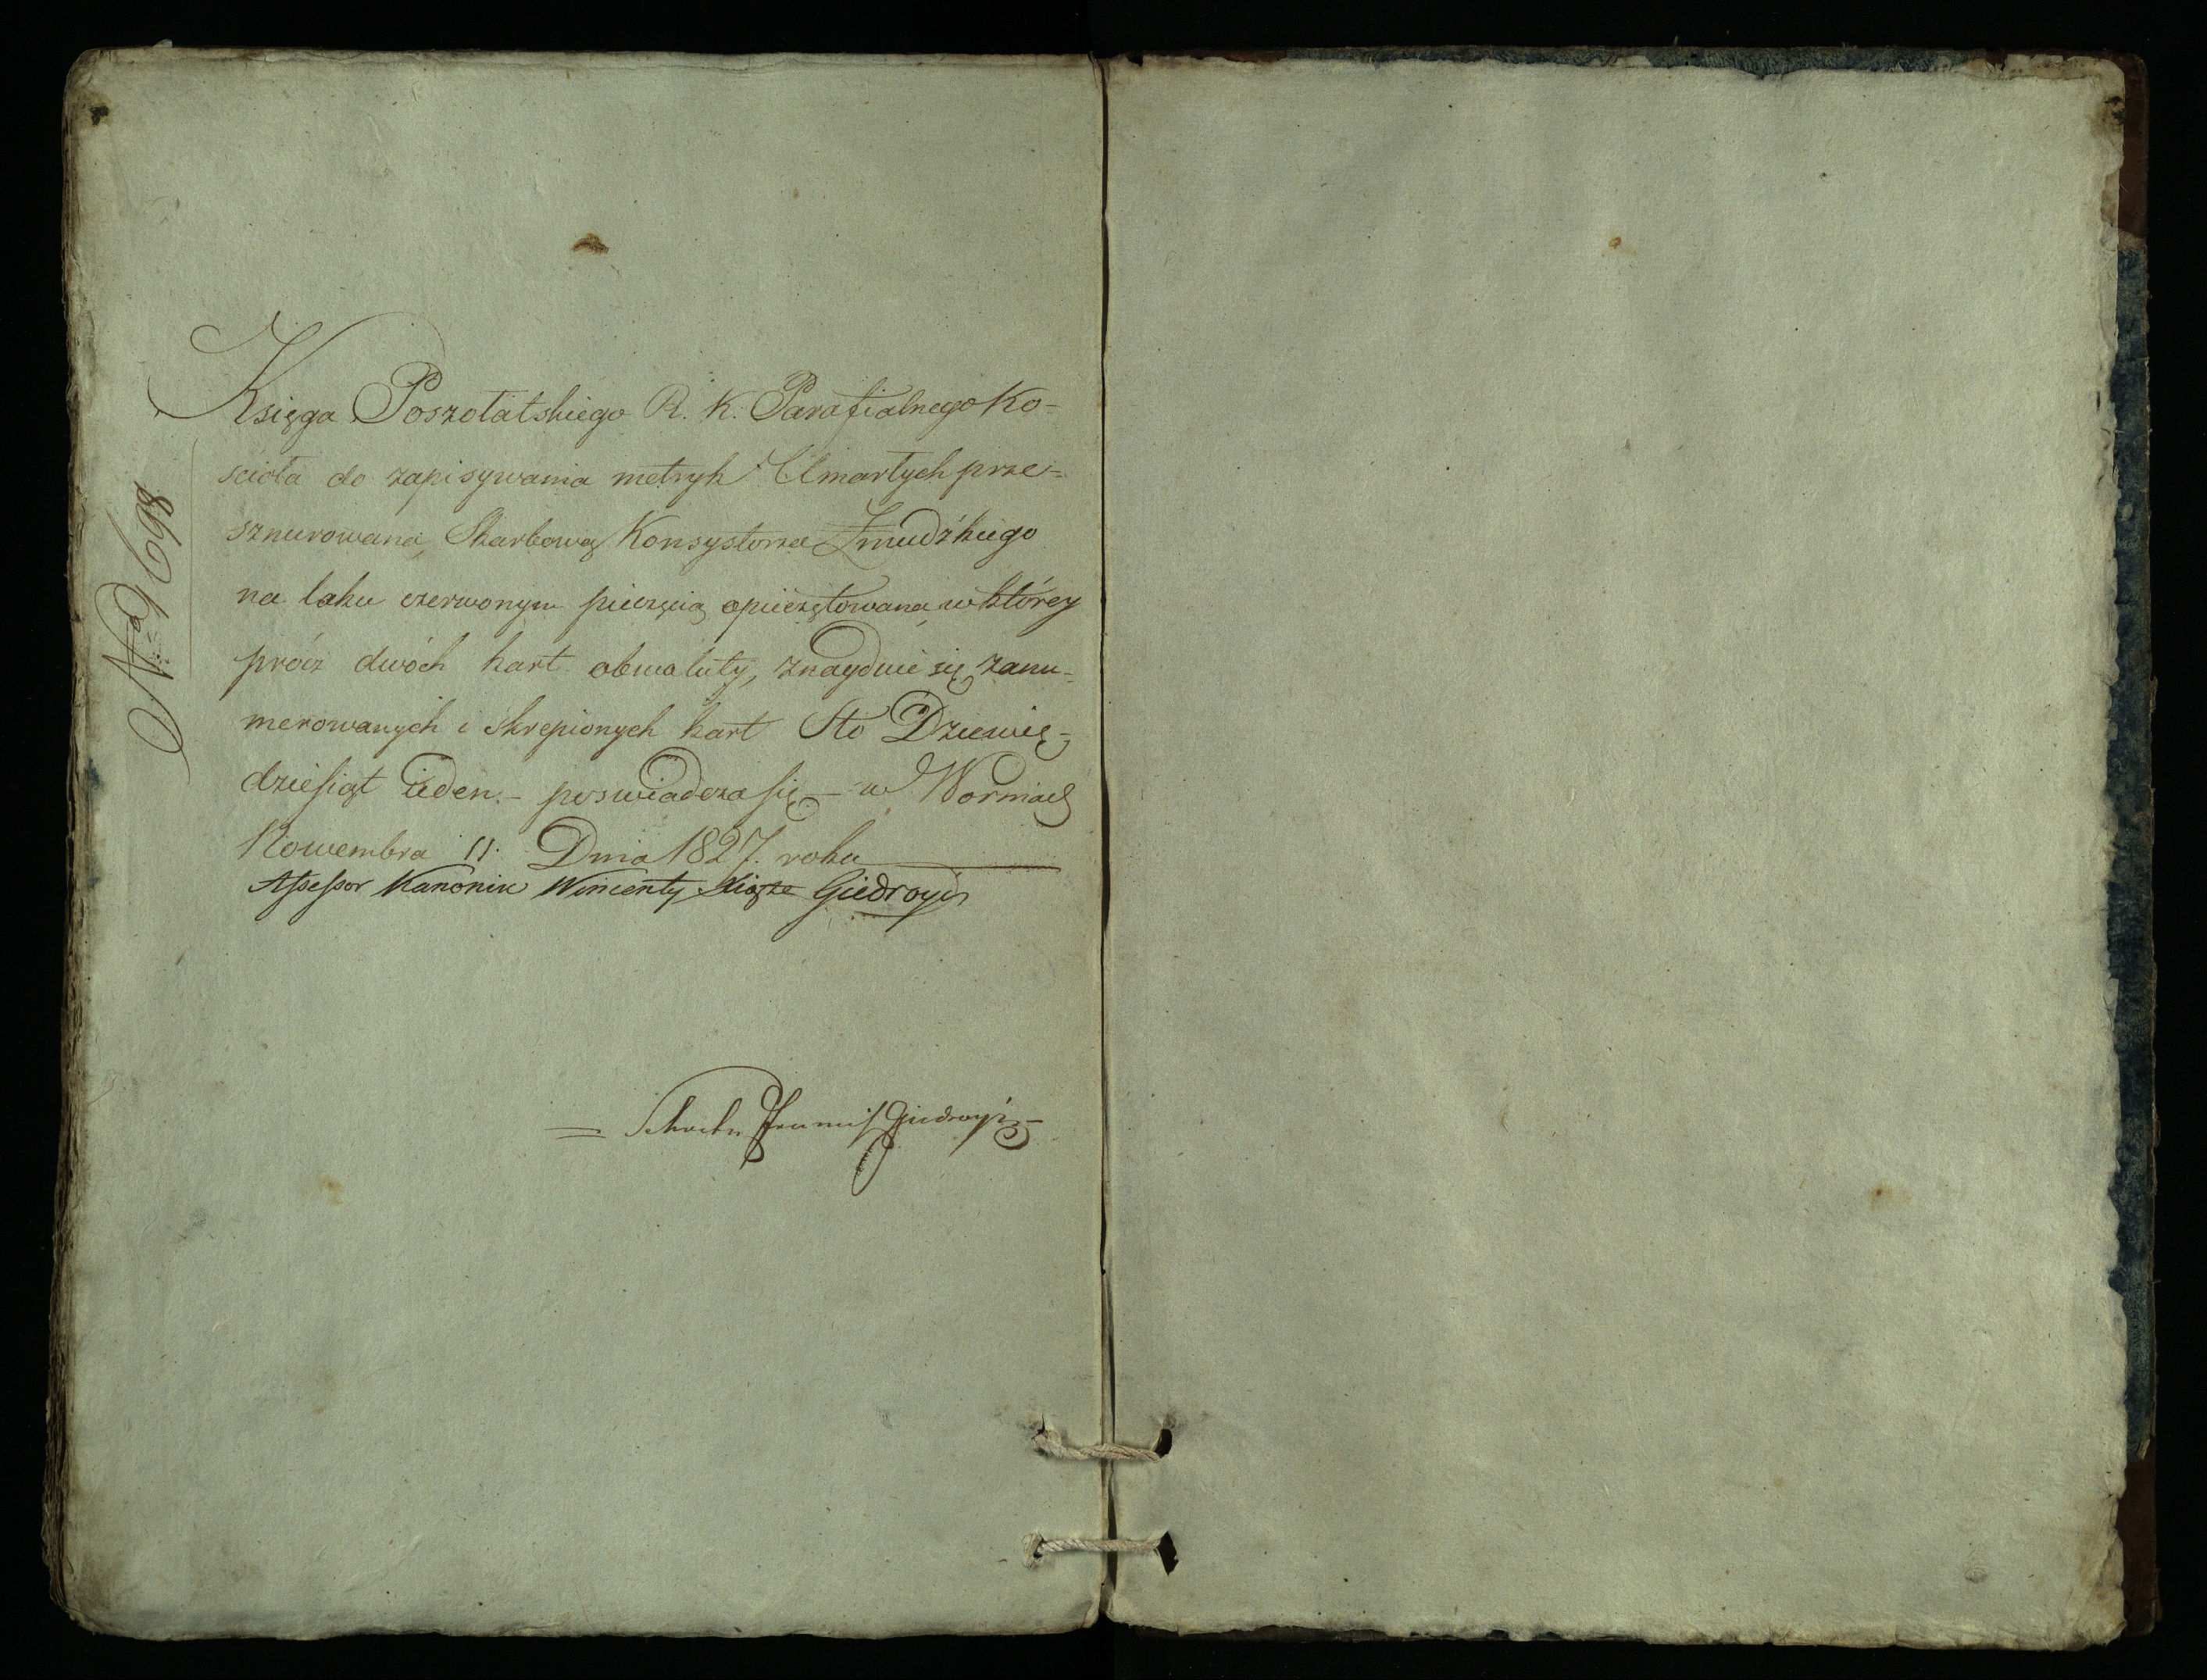 No 1698
Księga Poszołatskiego R. K. Parafialnego Ko-
scioła do zapisywania metryk Umarłych prze-
sznurowana, Skarbową Konsystorza Zmudzkiego
na laku czerwonym pieczęcią opieczętowana, w ktorey
prócz dwóch kart obwoluty, znayduie się zanu-
merowanych i skrepionych kart Sto Dziewię-
dziesiąt ieden. - poswiadcza się - w Worniach
Nowembra 11. Dnia 1827. roku
Assessor Kanonik Wincenty Xiąże Giedroyć
Giedroyć